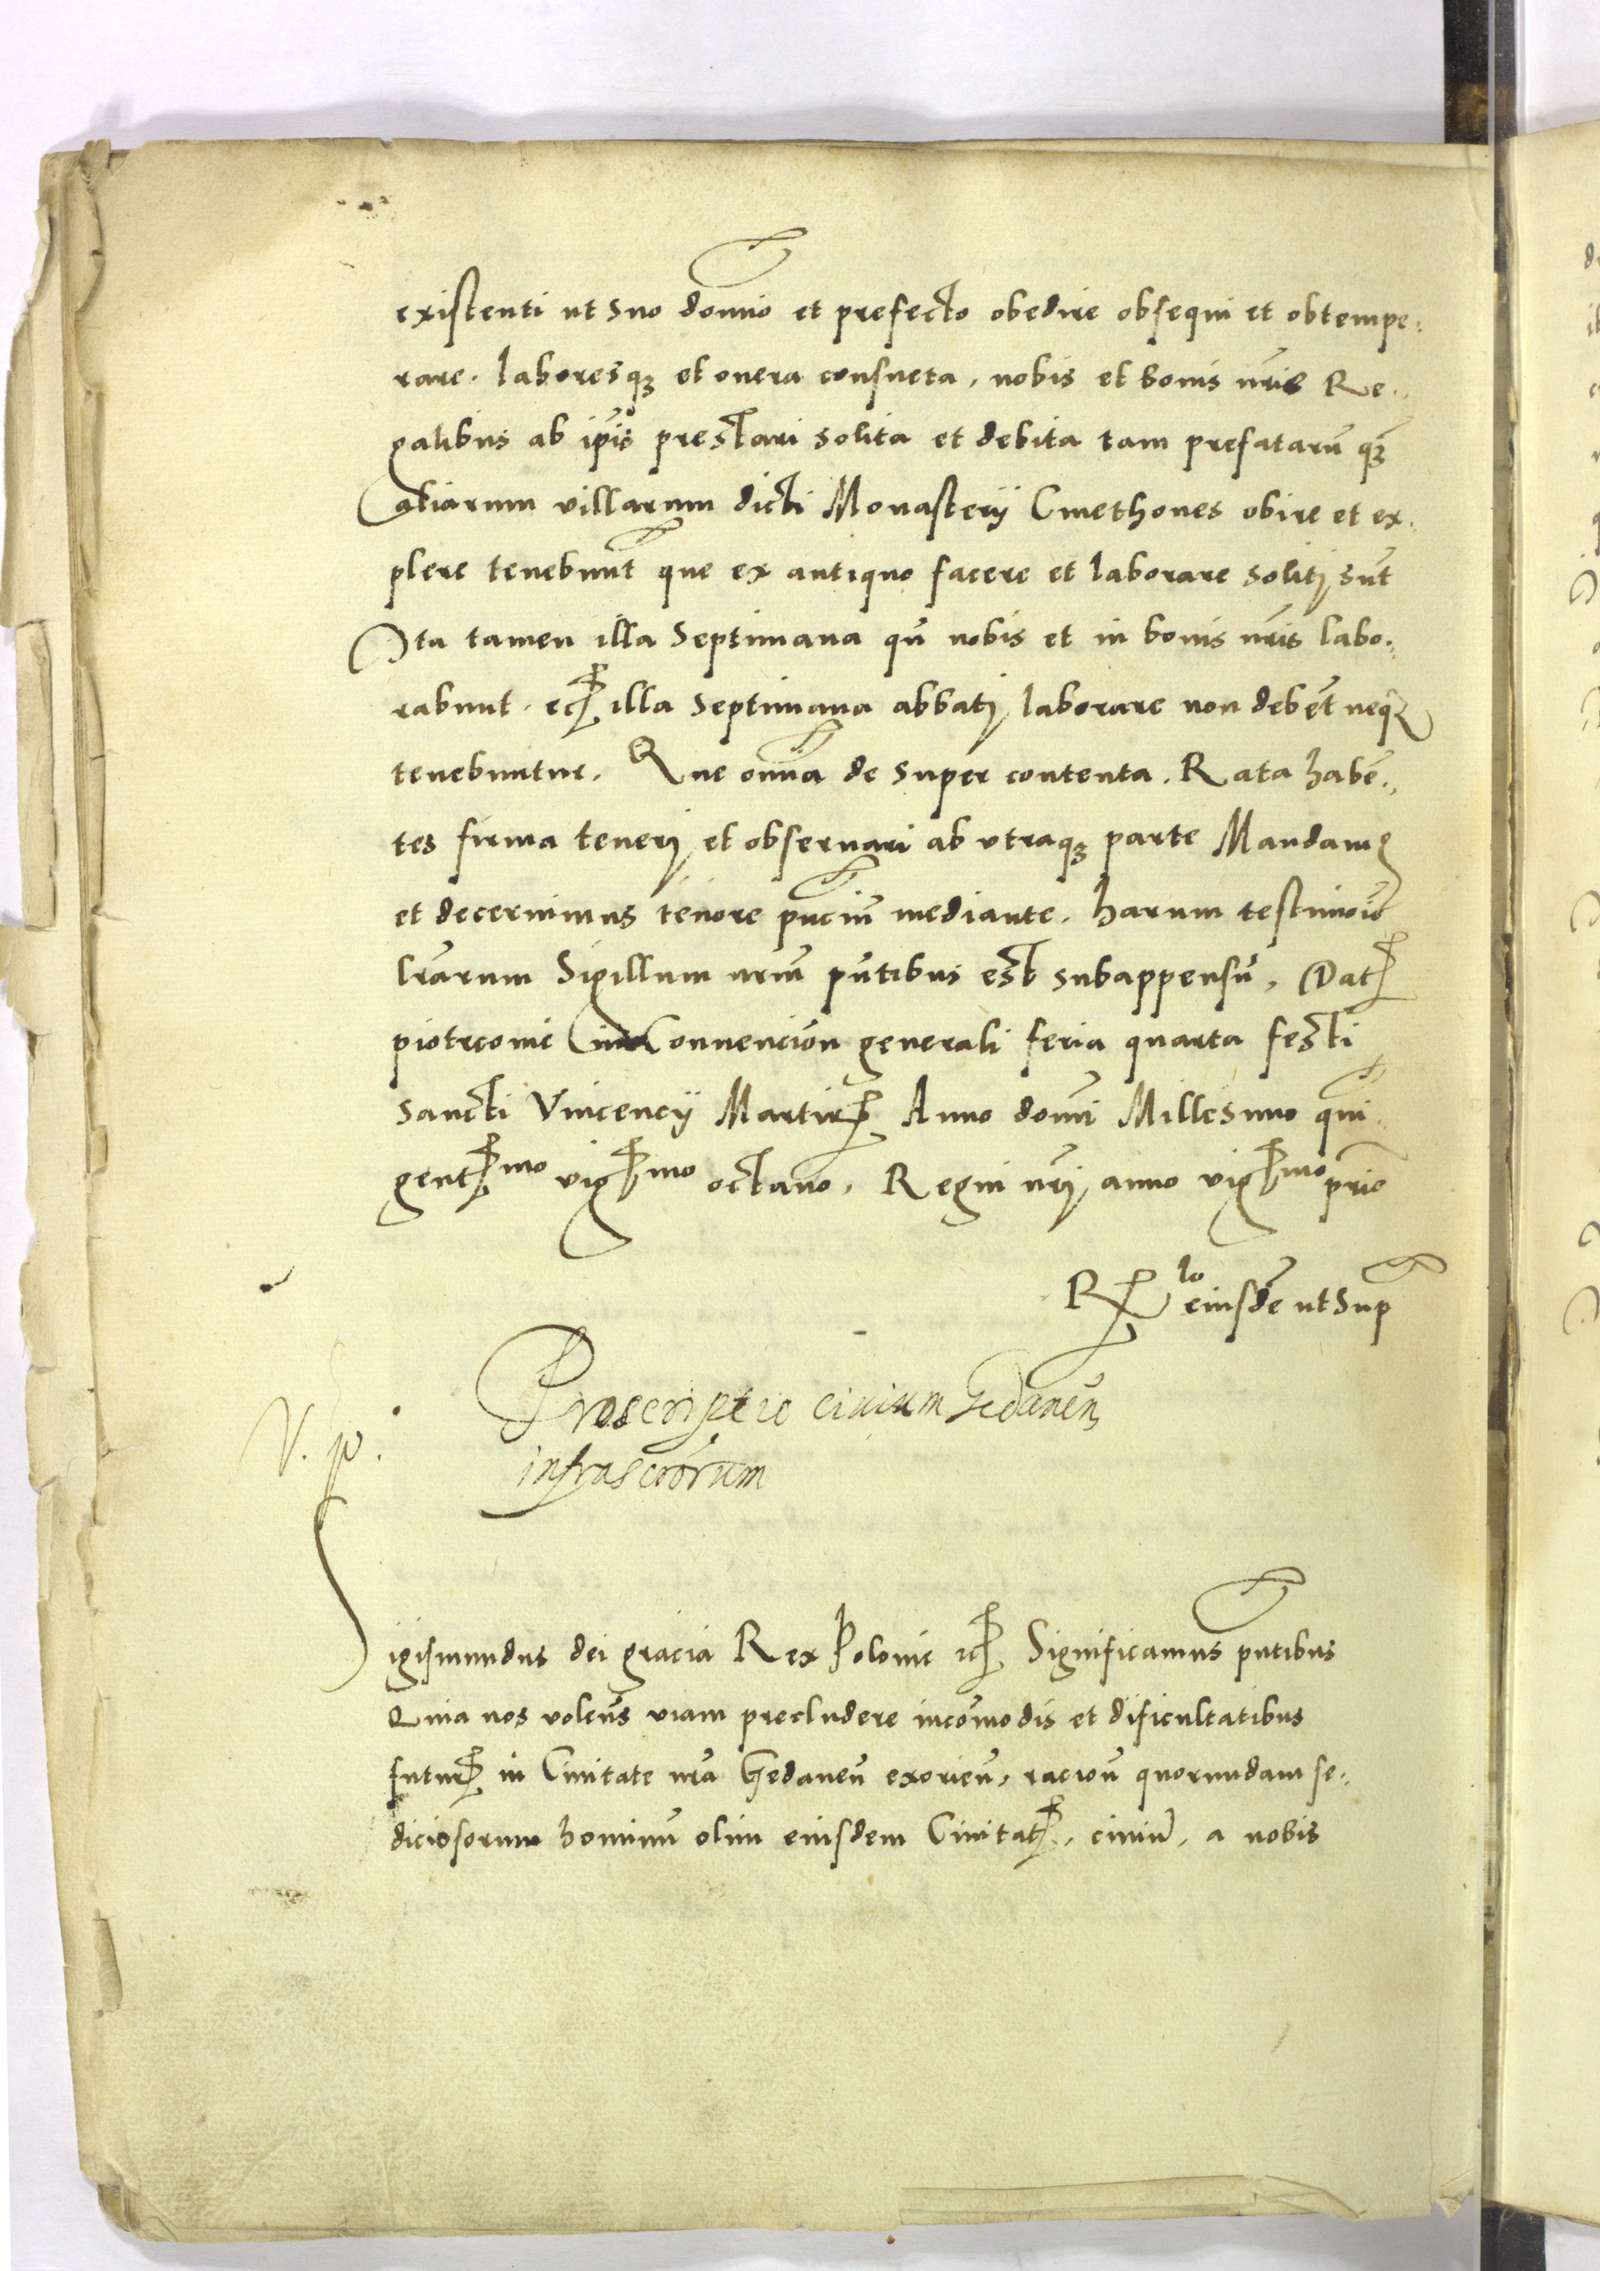 existenti ut suo domio et prefecto obedire obsequi et obtempe..
rare. laboresqȝ et onera consueta, nobis et bonis nr̃is Re..
galibus ab ip̃is prestari solita et debita tam prefatarũ qȝ̃
aliarum villarum dicti Monasterij Cmethones obire et ex..
plere tenebunt que ex antiquo facere et laborare soliti sũt
Ita tamen illa Septimana qũ nobis et in bonis nr̃is labo..
rabunt. illa septimana abbati laborare non debẽt neqȝ
tenebuntur. Que om̃ia de super contenta. Rata habẽ..
tes firma teneri et observari ab utraqȝ parte Mandamꝰ
et decernimus tenore pñciũ mediante. Harum testimoĩo
lr̃arum Sigillum nr̃m pñtibus est subappensũ, Datꝭ
piotrcovie in Convencioñ generali feria quarta festi
sancti Vincencij Martirꝭ Anno domĩ Millesimo qui..
gentꝭmo vigꝭmo octavo, Regni nr̃i anno vigꝭmo prĩo
Rꝭlo eiusdẽ ut Sup
Proscriptio civium Gedaneñ
infrascr̃orum
V. p.
Sigismundus dei gracia Rex Polonie ꝛcꝭ Significamus pñtibus
Quia nos voleñs viam precludere incõmodis et dificultatibus
futurꝭ in Civitate nr̃a Gedaneñ exorieñ, racioñ quorundam se..
diciosorum hominũ olim eiusdem Civitatꝭ, civiũ, a nobis